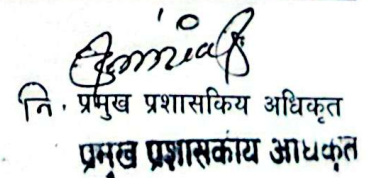 नि. प्रमुख प्रशासकिय अधिकृत
प्रमुख प्रशासकीय अधिकृत